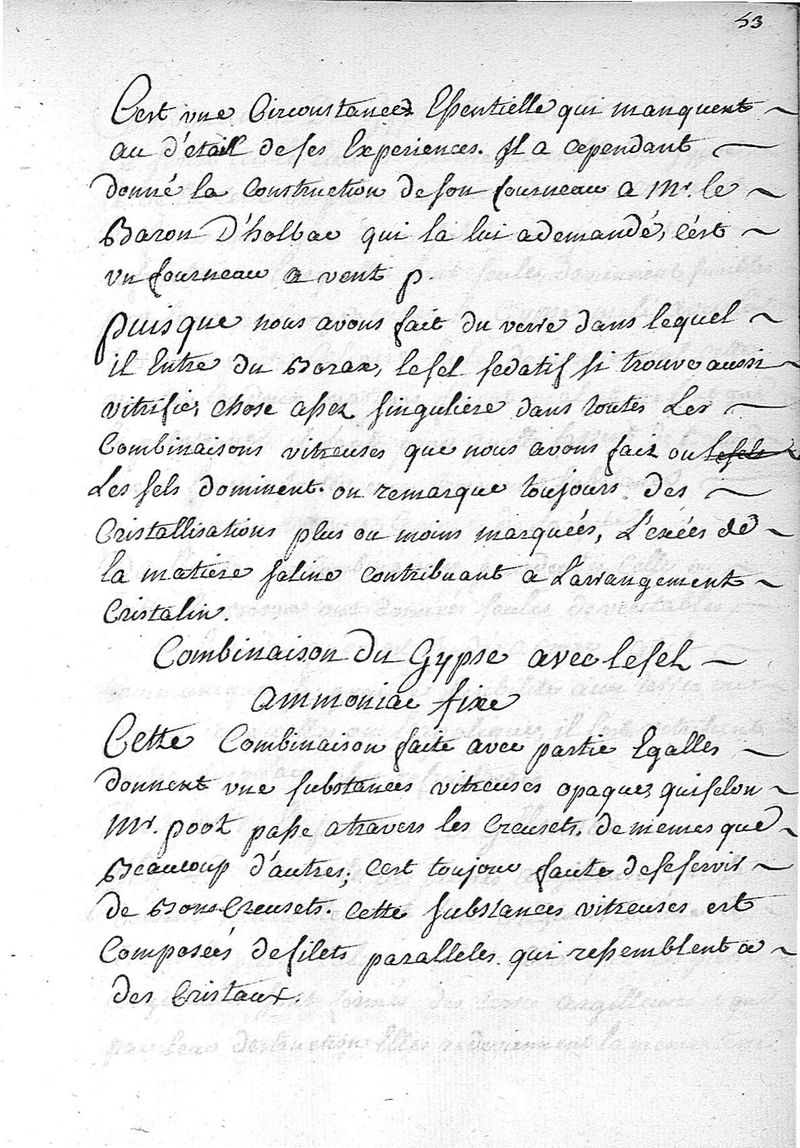 53
C'est une Circonstances Essentielle qui manquent
au d'étail de ses Experiences. Il a cependant
donné la Construction de son fourneau a Mr. le
Baron D'holbac qui la lui a demandé, c'ést
un fourneau a vent p.
puisque nous avons fait du verre dans lequel
il Entre du Borax, le sel sedatif si trouve aussi
vitrifié, chose assez singuliére dans toutes Les
Combinaisons vitreuses que nous avons fait ou le sels
Les sels dominent. on remarque toujours des
Cristallisations plus ou moins marqueés, L'exées de
la matiére saline contribuant a L'arrangement
Cristalin.
Combinaison Du Gypse avec le sel
ammoniac fixe
Cette Combinaison faite avec partie Egalles
donnent une substances vitreuses opaque, qui selon
Mr. poot passe atravers les Creusets. de memes que
Beaucoup d'autres; c'est toujour faute de se servir
de Bons Creusets. Cette substances vitreuses est
Composées de filets paralleles qui ressemblent a
des Cristaux.